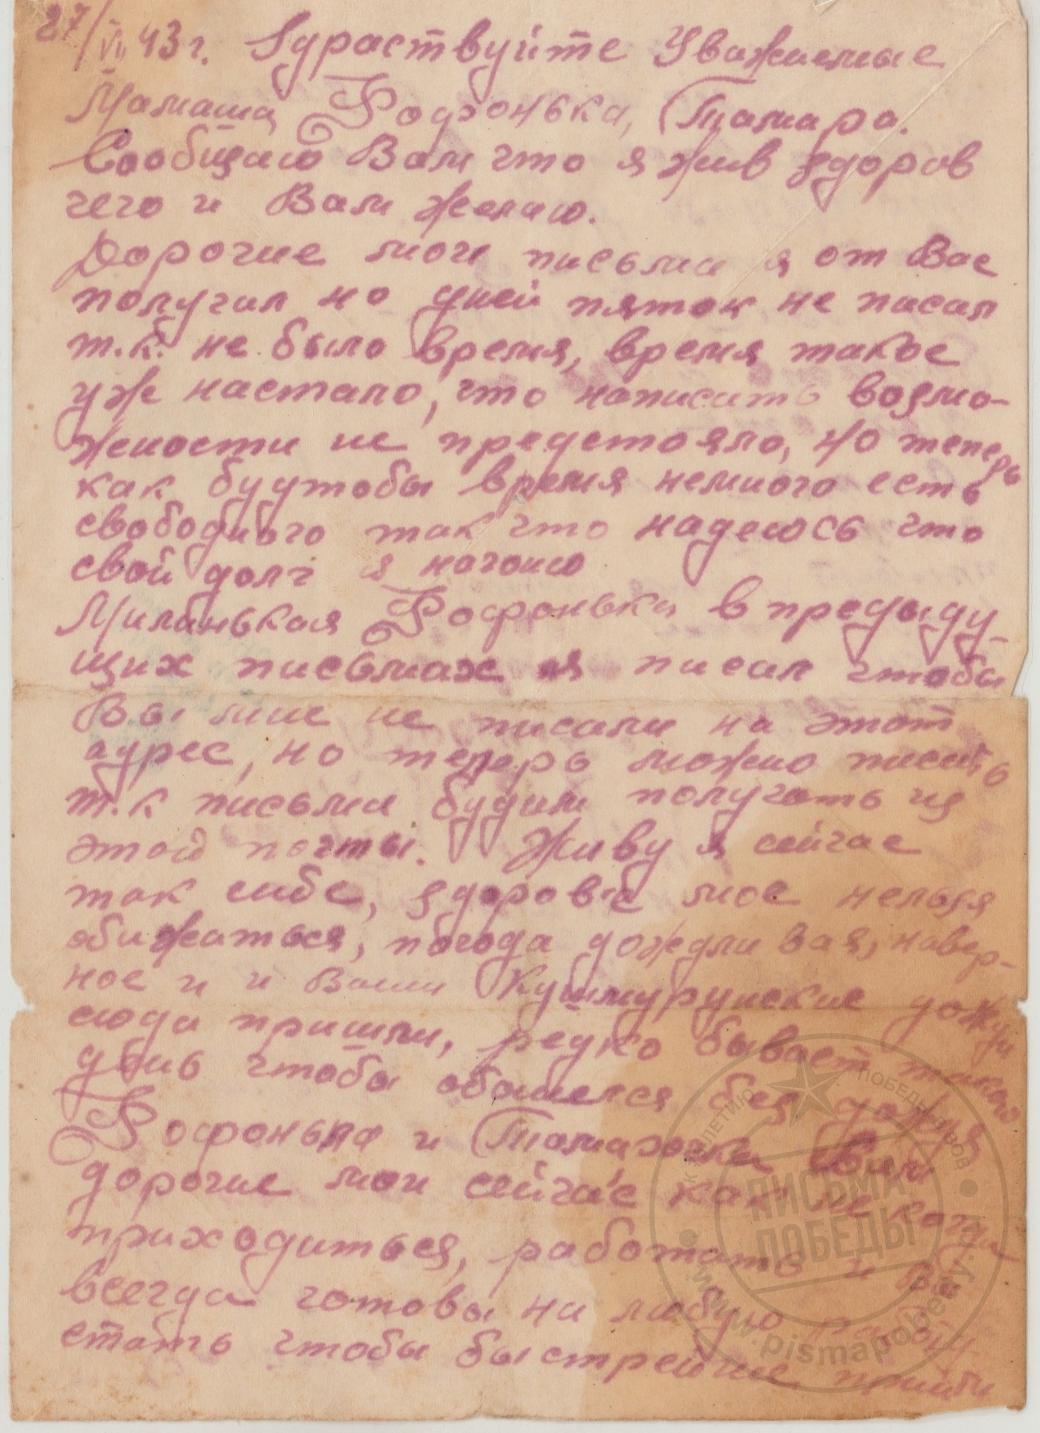 27/VI 43 г. Здраствуйте Уважаемые
Мамаша, Рофонька, Тамара.
Сообщаю Вам что я жив здоров
чего и Вам желаю.
Дорогие мои письма я от Вас
получил но дней пяток не писал
т.к. не было время, время такое
уже настало, что написать возмо-
жности не предстояло, но теперь
как будтобы время немного есть
свободного так что надеюсь что
свой долг я
Миленькая Рофонька в предыду-
щих письмах я писал чтобы
Вы мне не писали на этот
адрес, но теперь можно писать
т.к письма будим получать из
этой почты. Живу я сейчас
так сибе, здоровье мое нельзя
обижаться, погода дождливая, навер-
ное и и Ваши Кушмурунские дожди
сюда пришли, редко бывает такого
день чтобы обошелся без дождя
Рофонька и Тамарочка Вам
дорогие мои сейчас как не когда
приходиться, работать и Вы
всегда готовы на любую работу
стать чтобы быстрейше
ПИСЬМА
ПОБЕДЫ
www.pismapobedy.ru